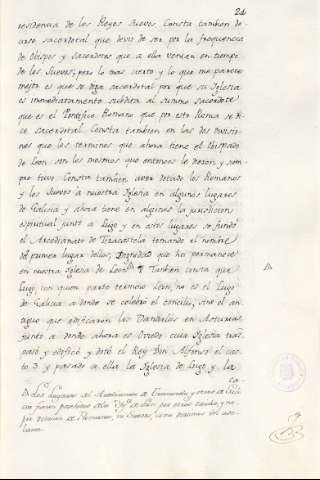 24
residencia de los Reyes Suevos. Consta tambien de
curso sacerdotal que devio de ser por la frequencia
de Obispos y Sacerdotes que a ella venian en tiempo
de los Suevos; pero lo mas cierto y lo que me parece
mejor es que se diga sacerdotal por que su Iglesia
es inmediatamente subdita al sumo sacerdote
que es el Pontifice Romano que por esto Roma se di
ce sacerdotal. Consta tambien en las dos divisio
nes que los terminos que ahora tiene el Obispado
de Leon son los mesmos que entonces le dieron, y siem
pre tuvo. Consta tambien aver dotado los Romanos
y los Suevos a nuestra Iglesia en algunos lugares
de Galicia y ahora tiene en algunos la jurisdicion
espiritual junto a Lugo y en estos lugares se fundó
el Arcedianato de Triacastela tomando el nombre
del primer lugar dellos, Dignidad que ha permanecido
en nuestra Iglesia de Leon. Tanbien consta que
Lugo, con quien parte termino Leon, no es el Lugo
de Galicia a donde se celebró el concilio, sino el an
tiguo que edificaron los Vandalos en Asturias,
junto a donde ahora es Oviedo cuia Iglesia tras
pasó y edificó y dotó el Rey Don Alfonso el cas
to 3 y pasado a ella la Iglesia de Lugo y la
Los lugares del Arcedianato de Triacastela, y otros de Gali
cia fueron